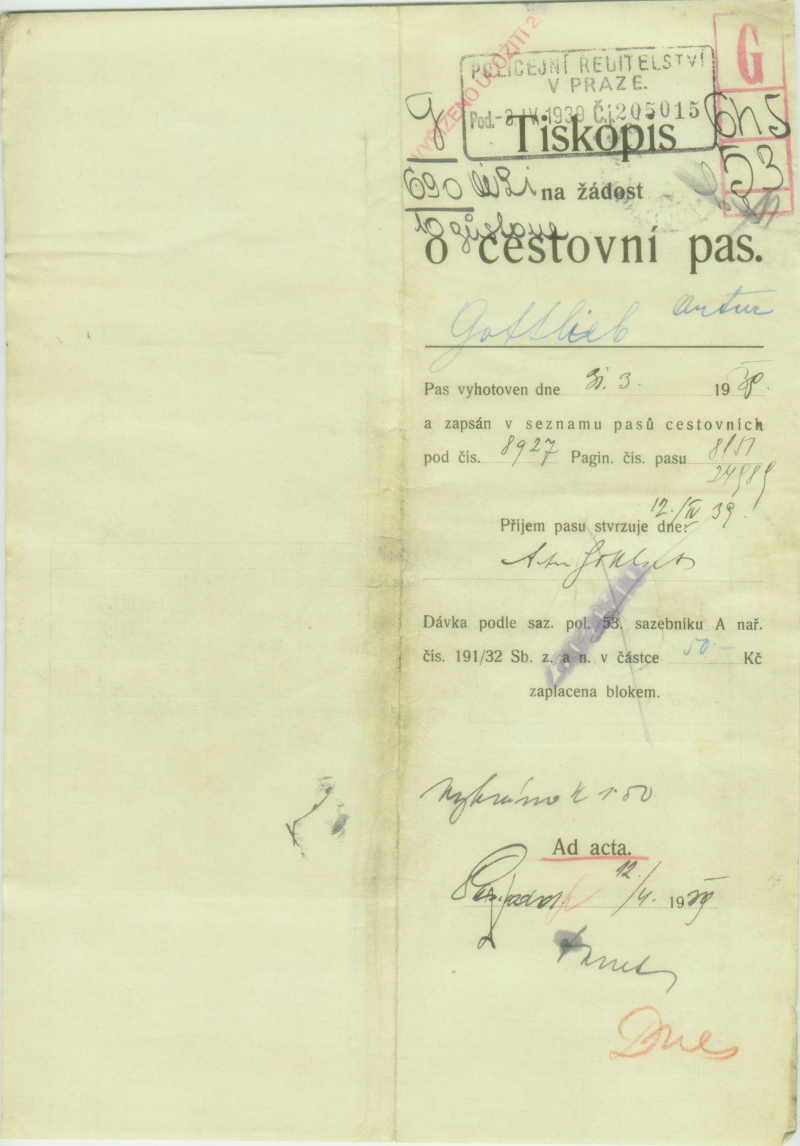 G
POLICEJNÍ ŘEDITELSTVÍ
V PRAZE.
Pod. -3 IV. 1939 Čj 205015
G
Tiskopis
690
53
na žádost
o cestovní pas.
Gottlieb Artur
Pas vyhotoven dne 31. 3. 1939.
a zapsán v seznamu pasů cestovních
pod čís. 8927 Pagin. čís. pasu 8151
24989
12./IV 39.
Příjem pasu stvrzuje dne:
Artur Gottlieb
Dávka podle saz. pol. 53, sazebníku A nař.
čís. 191/32 Sb. z. a n. v částce 50.— Kč
zaplacena blokem.
Vybráno K 1.50
Ad acta.
12./4. 1939
Dnes